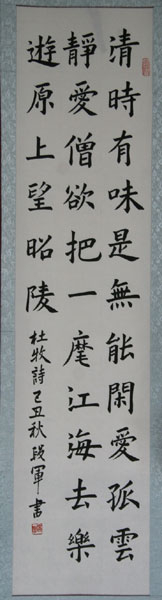 清時有味是無能閑愛孤雲
靜愛僧欲把一麾江海去樂
遊原上望昭陵
杜牧詩己丑秋段軍書